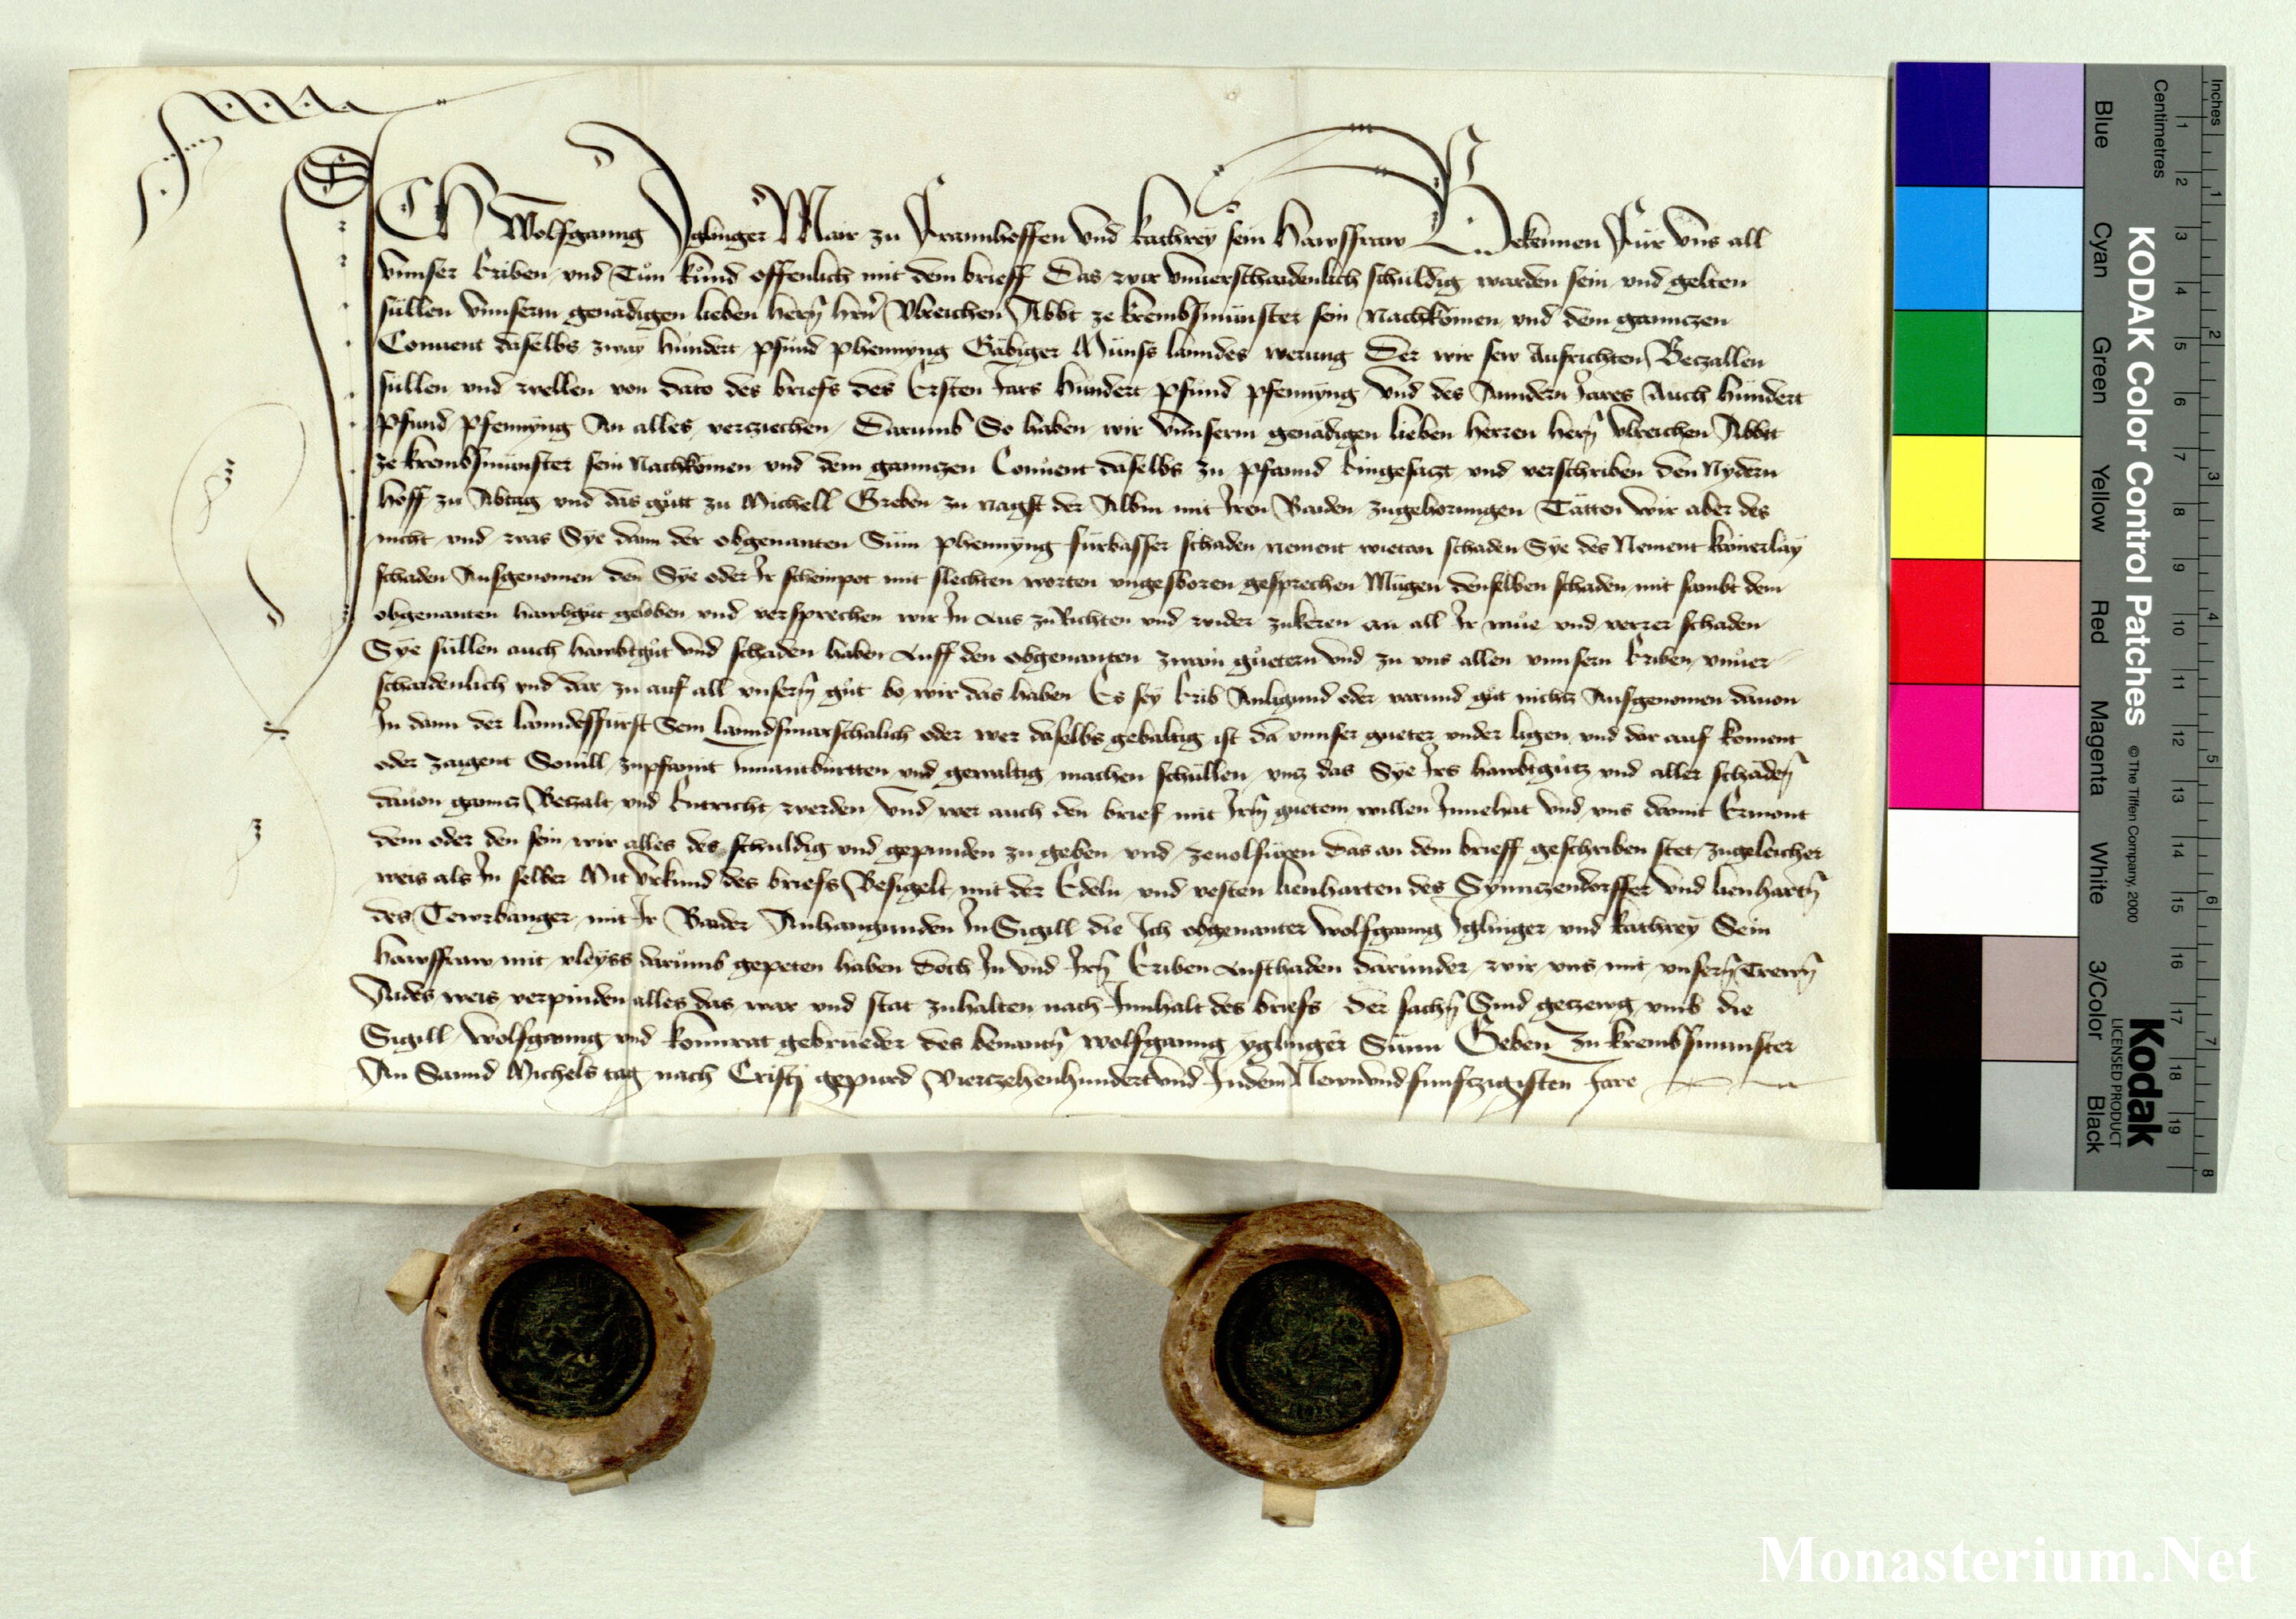 ICH Wolfganng Yglinger Mair zu Frannhoffen vnd kathrey sein hawsfraw Bekennen Für vns all
vnnser Eriben vnd Tůn kůnd offenlich mit dem brieff Das wir vnuerschaidenlich schuldig warden sein vnd gelten
süllen vnnserm genädigen lieben herñ hrñ Vlreichen Abbt ze krembsmünster sein Nachkomen vnd dem ganntzen
Conuent daselbs zway hundert pfund phennyng Gäbiger Münss lanndes werung Der wir sew Aufrichten Betzallen
süllen vnd wellen von dato des briefs des Ersten Jars hundert pfund pfennyng Vnd des Anndern Jares Auch hundert
pfund pfennyng An alles verziechen Darumb So haben wir Vnnserm genädigen lieben herren herñ vlreichen Abbt
ze krembsmünster sein Nachkomen vnd dem ganntzen Conuent daselbs zu pfannd Eingesatzt vnd verschriben den Nydern
hoff zu Abtag vnd das gůtt zu Michell Greben zu nagst der Albm mit Jren Baiden zugehorungen Tätten wir aber des
nicht vnd was Sye dann der obgenanten Sum phennyng fürbasser schaden nement wietan schaden Sye des Nement kainerlay
schaden Ausgenomen den Sye oder Jr scheinpot mit slechten worten vngesworen gesprechen Mügen denselben schaden mit sambt dem
obgenanten hawbtgut geloben vnd versprechen wir Jn aus zu Richten vnd wider zukeren an all Jr müe vnd verrer schaden
Sye süllen auch hawbtgůt Vnd schaden haben Auff den obgenanten zwain gůetern vnd zu vns allen vnnsern Eriben vnuer
schaidenlich vnd dar zu auf all vnserm̃ gůt bo wir das haben Es sey Erib Anligund oder varund gůt nichtz Ausgenomen dauon
Jn dann der lanndesfürst Sein lanndsmarschalich oder wer daselbs gebaltig ist da vnnser gueter vnder ligen vnd dar auf koment
oder zaigent Souill zupfannt Jnnantburtten vnd gewaltig machen schüllen vntz das Sye Jrs hawbtgůtz vnd aller schadeñ
dauon ganntz Betzalt vnd Entricht werden Vnd wer auch den brief mit Jrm̃ guetem willen Jnnehat Vnd vns damit Ermont
dem oder den sein wir alles des schuldig vnd gepunden zu geben vnd zeuolfüren Das an dem brieff geschriben stet zugeleicher
weis als Jn selber Mit Vrkund des briefs Besigelt mit der Edeln vnd vesten lienharten des Synntzendorffer Vnd lienhartñ
des Tewrbanger mit Jr Baider Anhangunden InSigill die Jch obgenanter Wolfganng Yglinger vnd kathrey Sein
hawsfraw mit vleyss darumb gepeten haben doch Jn vnd Jrñ Eriben Anschaden darunder wir vns mit vnserñ Trewñ
Andes weis verpinden alles das war vnd stat zuhalten nach Jnnhalt des briefs Der sachñ Sind getzewg vmb die
Sigill Wolfganng vnd konnrat gebrüeder des benantñ wolfganng yglinger Sünn Geben Zu krembsmunster
An Sannd Michels tag nach Cristj gepurd Viertzehenhundert Vnd Jndem Newnvndfunftzigisten Jare
KODAK Color Control Patches © The Tiffen Company, 2000
Kodak
LICENSED PRODUCT
Inches 1 2 3 4 5 6 7 8
Centimetres 1 2 3 4 5 6 7 8 9 10 11 12 13 14 15 16 17 18 19
Blue Cyan Green Yellow Red Magenta White 3/Color Black
Monasterium.Net